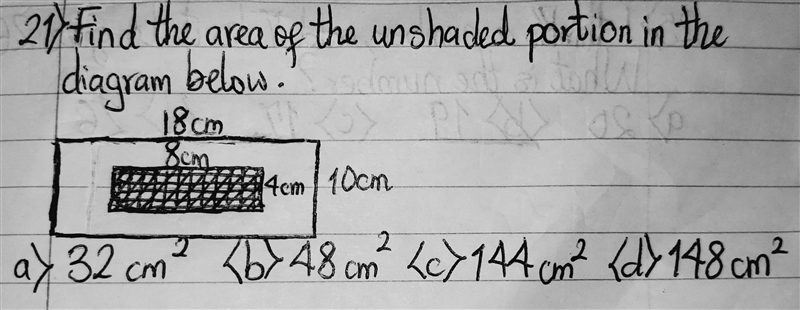 21) Find the area of the unshaded portion in the
diagram below.
18cm
8cm
4cm 10cm
a) 32 cm² (b) 48 cm² (c) 144 cm² (d) 148 cm²